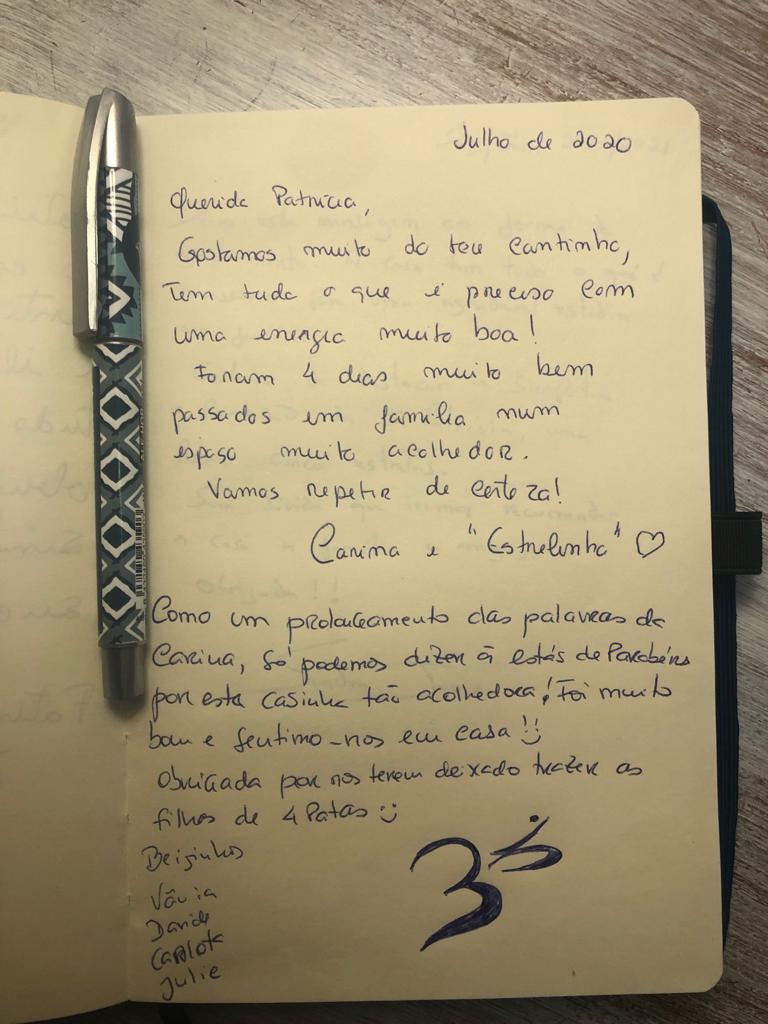 Julho de 2020
Querida Patrícia,
Gostamos muito do teu Cantinho,
Tem tudo o que é preciso com
uma energia muito boa!
Foram 4 dias muito bem
passados em família num
espaço muito acolhedor.
Vamos repetir de certeza!
Carina e "Estrelinha" ♡
Como um prolongamento das palavras da
Carina, só podemos dizer q estás de Parabéns
por esta casinha tão acolhedora! Foi muito
bom e sentimo-nos em casa!!
Obrigada por nos terem deixado trazer os
filhos de 4 Patas :)
Beijinhos
Vânia
David
Carlota
Julie